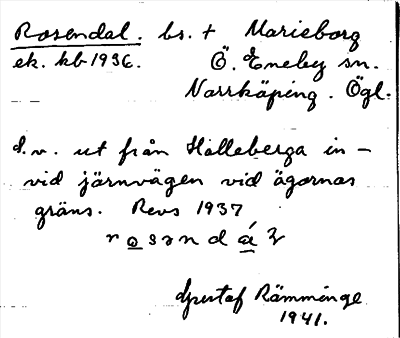 Rosendal. bs. + Marieborg
ek. kb 1936. Ö. Eneby sn.
Norrköping. Ögl.
d.v. ut från Hälleberga in-
vid järnvägen vid ägornas
gräns. Revs 1937
Gustaf Rämminge
1941.